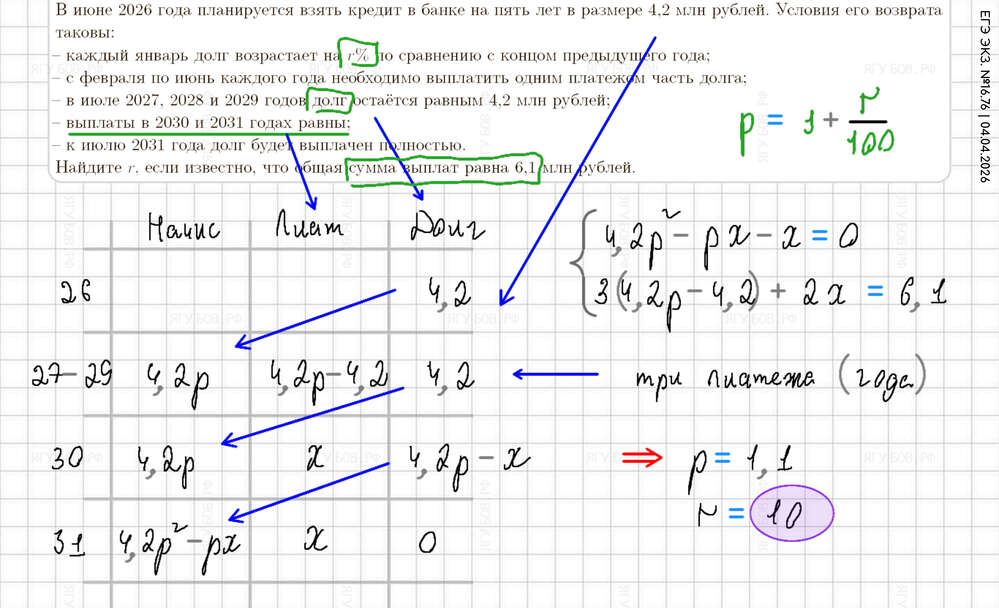 В июне 2026 года планируется взять кредит в банке на пять лет в размере 4,2 млн рублей. Условия его возврата
таковы:
– каждый январь долг возрастает на r% по сравнению с концом предыдущего года;
– с февраля по июнь каждого года необходимо выплатить одним платежом часть долга;
– в июле 2027, 2028 и 2029 годов долг остаётся равным 4,2 млн рублей;
– выплаты в 2030 и 2031 годах равны;
– к июлю 2031 года долг будет выплачен полностью.
Найдите r, если известно, что общая сумма выплат равна 6,1 млн рублей.
p = 1 + r/100
ЕГЭ ЭКЗ. №16.76 | 04.04.2026
Начис Плат Долг
26 4,2
27–29 4,2p 4,2p–4,2 4,2
30 4,2p x 4,2p – x
31 4,2p² – px x 0
4,2p² – px – x = 0
3(4,2p – 4,2) + 2x = 6,1
три платежа (года)
⇒ p = 1,1
r = 10
ЯГУБОВ.РФ